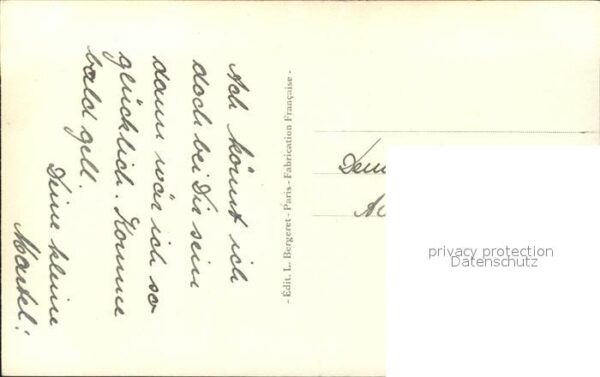 Ach könnt ich
doch bei Dir sein
dann wär ich so
glücklich. Komme
bald gell.
Deine kleine
Martel!
- Édit. L. Bergeret - Paris - Fabrication Française -
privacy protection
Datenschutz